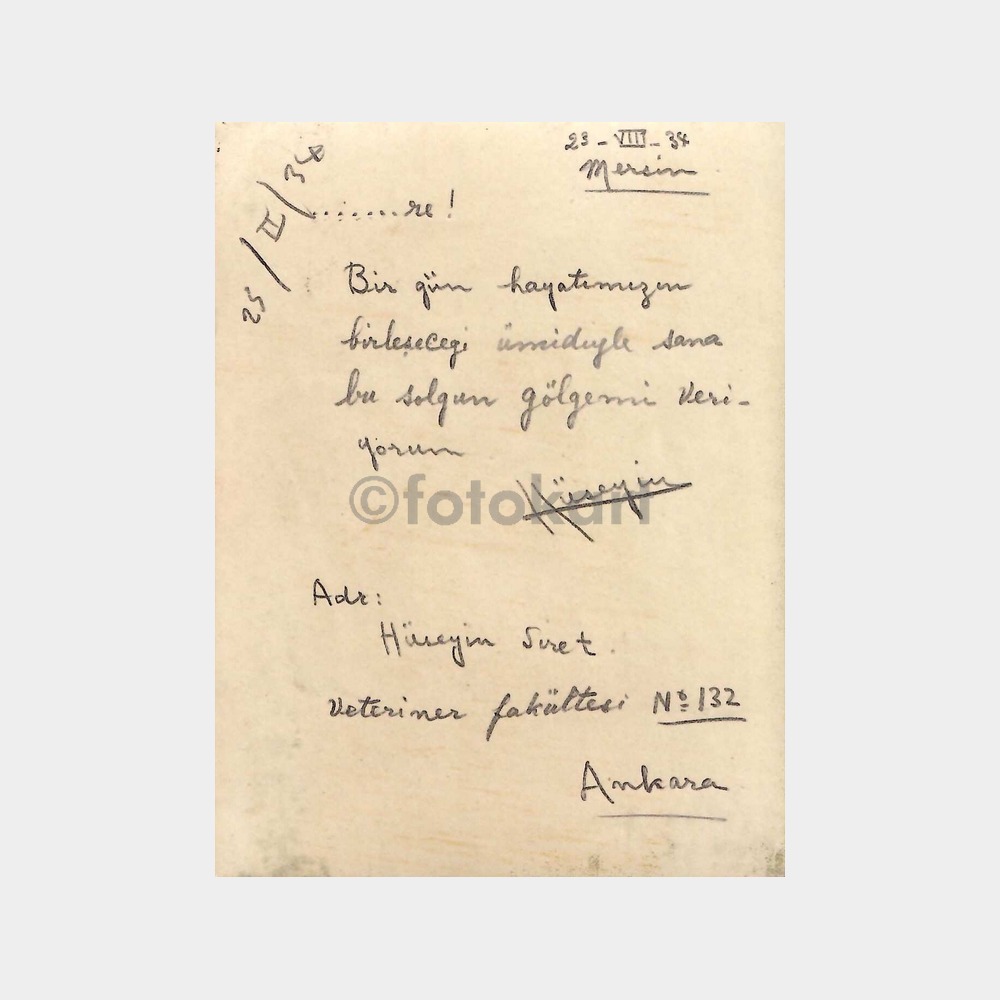 23-VIII-34
Mersin
25/II/34
........re!
Bir gün hayatımızın
birleşeceği ümidiyle sana
bu solgun gölgemi veri-
yorum
Hüseyin
©fotokart
Adr:
Hüseyin Siret.
Veteriner fakültesi No 132
Ankara